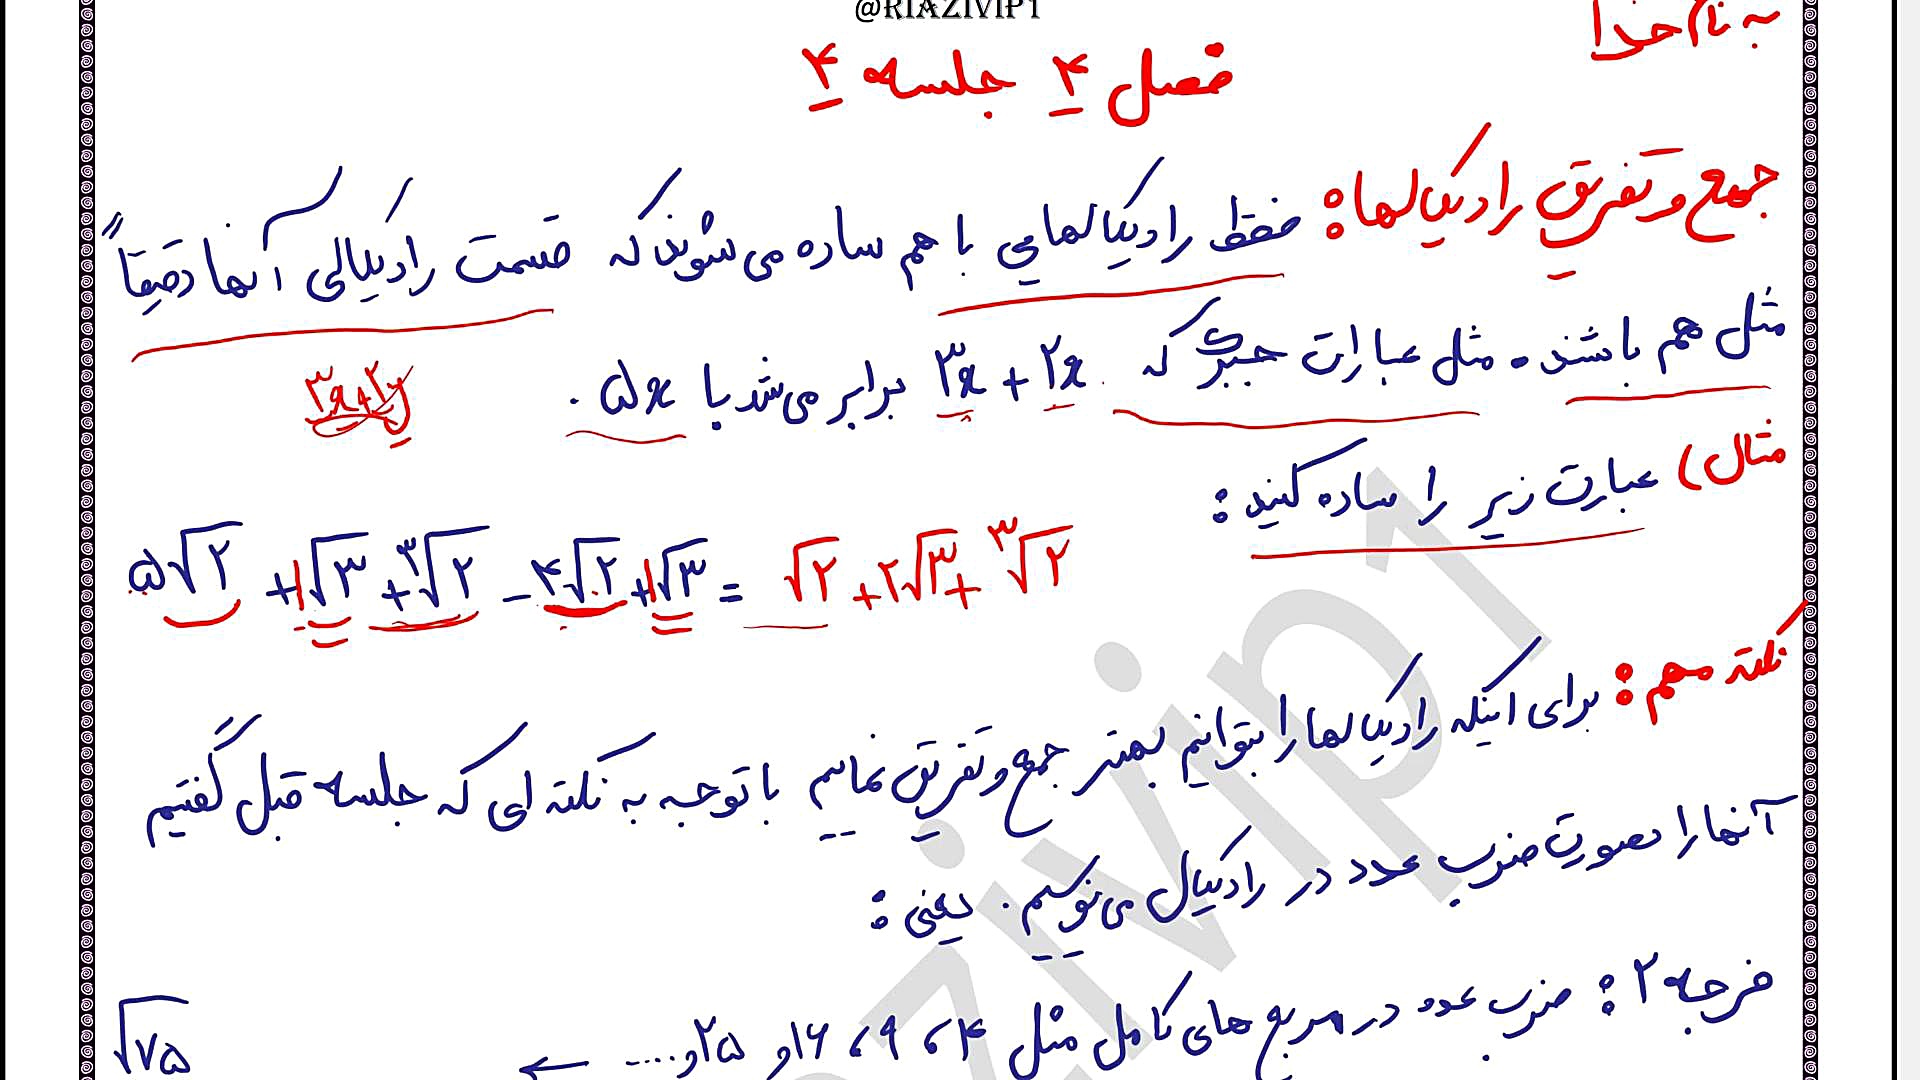 @RIAZIVIP1
به نام خدا
فصل ۴ جلسه ۴
جمع و تفریق رادیکالها: فقط رادیکالهایی با هم ساده می‌شوند که قسمت رادیکالی آنها دقیقاً
مثل هم باشند. مثل عبارات جبری که ۳x + ۲x برابر می‌شد با ۵x .
۳x+۲y
مثال) عبارت زیر را ساده کنید:
۵√۲ +۱√۳ +³√۲ - ۴√۲ +۱√۳ = √۲ +۲√۳ + ³√۲
نکته مهم: برای اینکه رادیکالها را بتوانیم بهتر جمع و تفریق نماییم با توجه به نکته ای که جلسه قبل گفتیم
آنها را بصورت ضرب عدد در رادیکال می‌نویسیم. یعنی:
فرجه ۲: ضرب عدد در مربع های کامل مثل ۴، ۹، ۱۶ و ۲۵ و .... ← √۷۵
zivip1